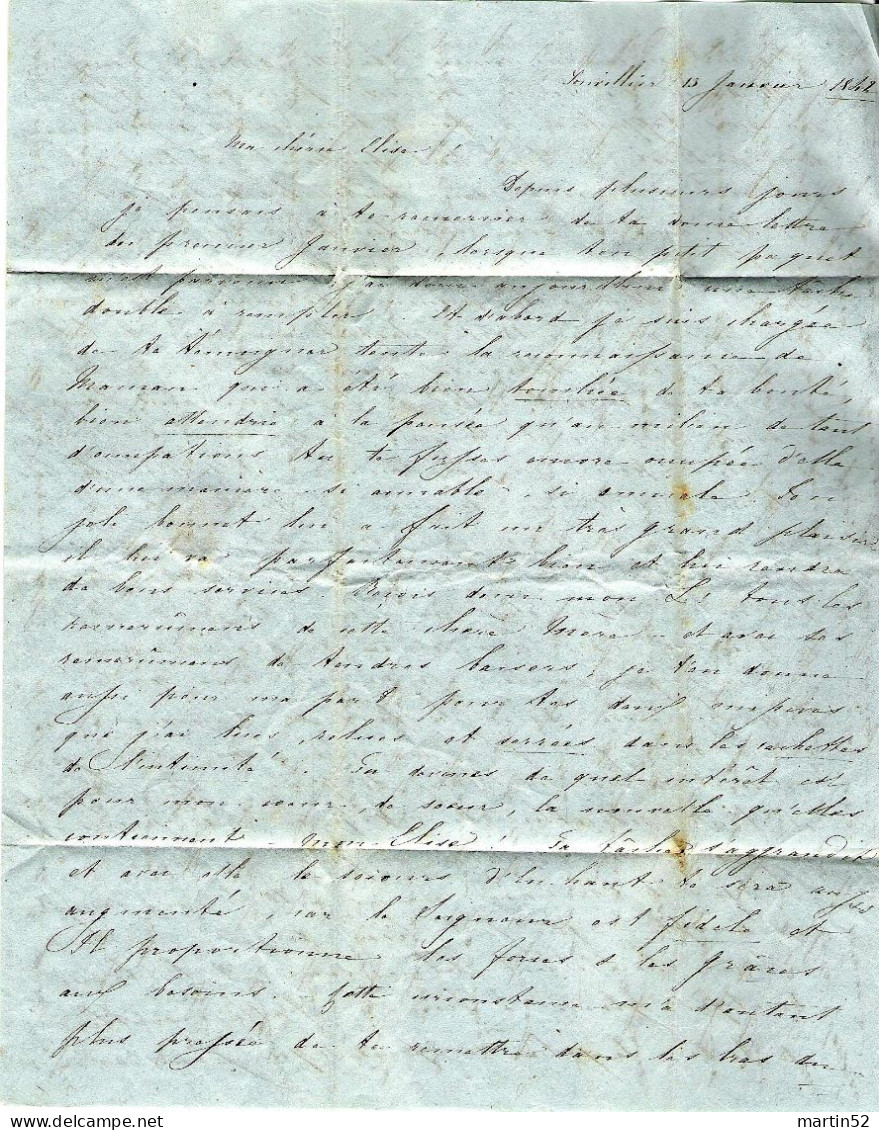 Sonvillier 13 Janvier 1842
Ma chère Elise!
Depuis plusieurs jours
je pensais à te remercier de ta bonne lettre
du premier Janvier, lorsque ton petit paquet
est parvenu j'ai donc aujourd'hui une tâche
double à remplir. Et d'abord je suis chargée
de te témoigner toute la reconnaissance de
Maman qui a été bien touchée de ta bonté,
bien attendrie à la pensée qu'au milieu de tant
d'occupations tu te fusses encore occupée d'elle
d'une manière si aimable, si amicale. Ton
joli bonnet lui a fait un très grand plaisir
il lui va parfaitement bien et lui rendra
de bons services. Reçois donc mon L. tous les
remercimens de cette chère Mère et avec ses
remercimens de tendres baisers, je t'en donne
aussi pour ma part pour tes deux
que j'ai lues, relues et serrées dans les cachettes
de l'intimité. Tu devines de quel intérêt est
pour mon coeur de soeur, la nouvelle qu'elles
contiennent. mon Elise! Ta tâche s'aggrandit
et avec elle le secours d'En haut te sera aussi
augmenté, car le Seigneur est fidèle et
Il proportionne les forces & les grâces
aux besoins. Cette circonstance m'a d'autant
plus pressée de te remettre dans les bras du
martin52